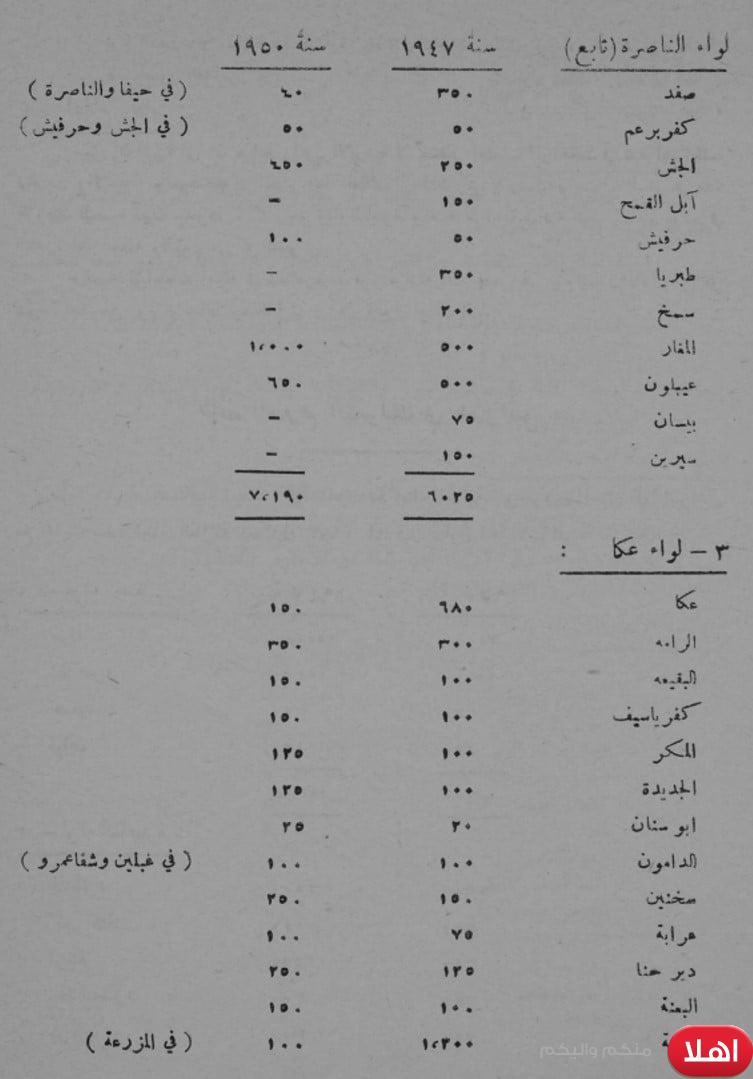 لواء الناصرة (تابع) سنة ١٩٤٧ سنة ١٩٥٠
صفد ٣٥٠ ٤٠ (في حيفا والناصرة)
كفر برعم ٥٠ ٥٠ (في الجش وحرفيش)
الجش ٢٥٠ ٤٥٠
آبل القمح ١٥٠ –
حرفيش ٥٠ ١٠٠
طبريا ٣٥٠ –
سمخ ٢٠٠ –
المغار ٥٠٠ ١،٠٠٠
عيبلون ٥٠٠ ٦٥٠
بيسان ٧٥ –
سيرين ١٥٠ –
٦٠٢٥ ٧،١٩٠
٣ – لواء عكا :
عكا ٦٨٠ ١٥٠
الرامه ٣٠٠ ٣٥٠
البقيعه ١٠٠ ١٥٠
كفر ياسيف ١٠٠ ١٥٠
المكر ١٠٠ ١٢٥
الجديدة ١٠٠ ١٢٥
ابو سنان ٢٠ ٢٥
الدامون ١٠٠ ١٠٠ (في عبلين وشفاعمرو)
سخنين ١٥٠ ٢٥٠
عرابة ٧٥ ١٠٠
دير حنا ١٢٥ ٢٥٠
البعنة ١٠٠ ١٥٠
١،٢٠٠ ١٠٠ (في المزرعة)
اهلا منكم واليكم